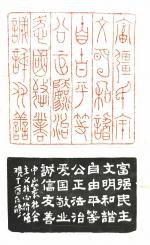 富彊民主
文明和谐
自由平等
公正法治
爱国敬业
诚信友善
富强民主
文明和谐
自由平等
公正法治
爱国敬业
诚信友善
社会
主义核心价值